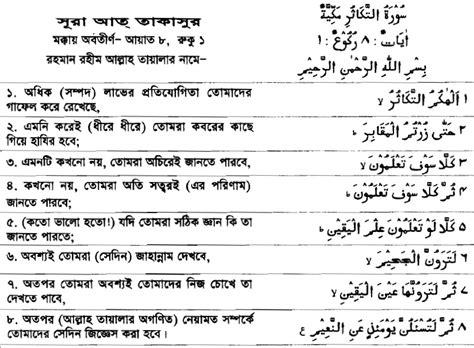 সূরা আত্ তাকাসুর
মক্কায় অবতীর্ণ- আয়াত ৮, রুকু ১
রহমান রহীম আল্লাহ তায়ালার নামে-
سُوْرَةُ التَّكَاثُرِ مَكِّيَّةٌ
اٰيَاتُ : ٨ رُكُوْعٌ : ١
بِسْمِ اللّٰهِ الرَّحْمٰنِ الرَّحِيْمِ
১. অধিক (সম্পদ) লাভের প্রতিযোগিতা তোমাদের
গাফেল করে রেখেছে,
١ اَلْهٰكُمُ التَّكَاثُرُ لا
২. এমনি করেই (ধীরে ধীরে) তোমরা কবরের কাছে
গিয়ে হাযির হবে;
٢ حَتّٰى زُرْتُمُ الْمَقَابِرَ ط
৩. এমনটি কখনো নয়, তোমরা অচিরেই জানতে পারবে,
٣ كَلَّا سَوْفَ تَعْلَمُوْنَ لا
৪. কখনো নয়, তোমরা অতি সত্বরই (এর পরিণাম)
জানতে পারবে;
٤ ثُمَّ كَلَّا سَوْفَ تَعْلَمُوْنَ ط
৫. (কতো ভালো হতো!) যদি তোমরা সঠিক জ্ঞান কি তা
জানতে পারতে;
٥ كَلَّا لَوْ تَعْلَمُوْنَ عِلْمَ الْيَقِيْنِ ط
৬. অবশ্যই তোমরা (সেদিন) জাহান্নাম দেখবে,
٦ لَتَرَوُنَّ الْجَحِيْمَ لا
৭. অতপর তোমরা অবশ্যই তোমাদের নিজ চোখে তা
দেখতে পাবে,
٧ ثُمَّ لَتَرَوُنَّهَا عَيْنَ الْيَقِيْنِ لا
৮. অতপর (আল্লাহ তায়ালার অগণিত) নেয়ামত সম্পর্কে
তোমাদের সেদিন জিজ্ঞেস করা হবে।
٨ ثُمَّ لَتُسْئَلُنَّ يَوْمَئِذٍ عَنِ النَّعِيْمِ ع